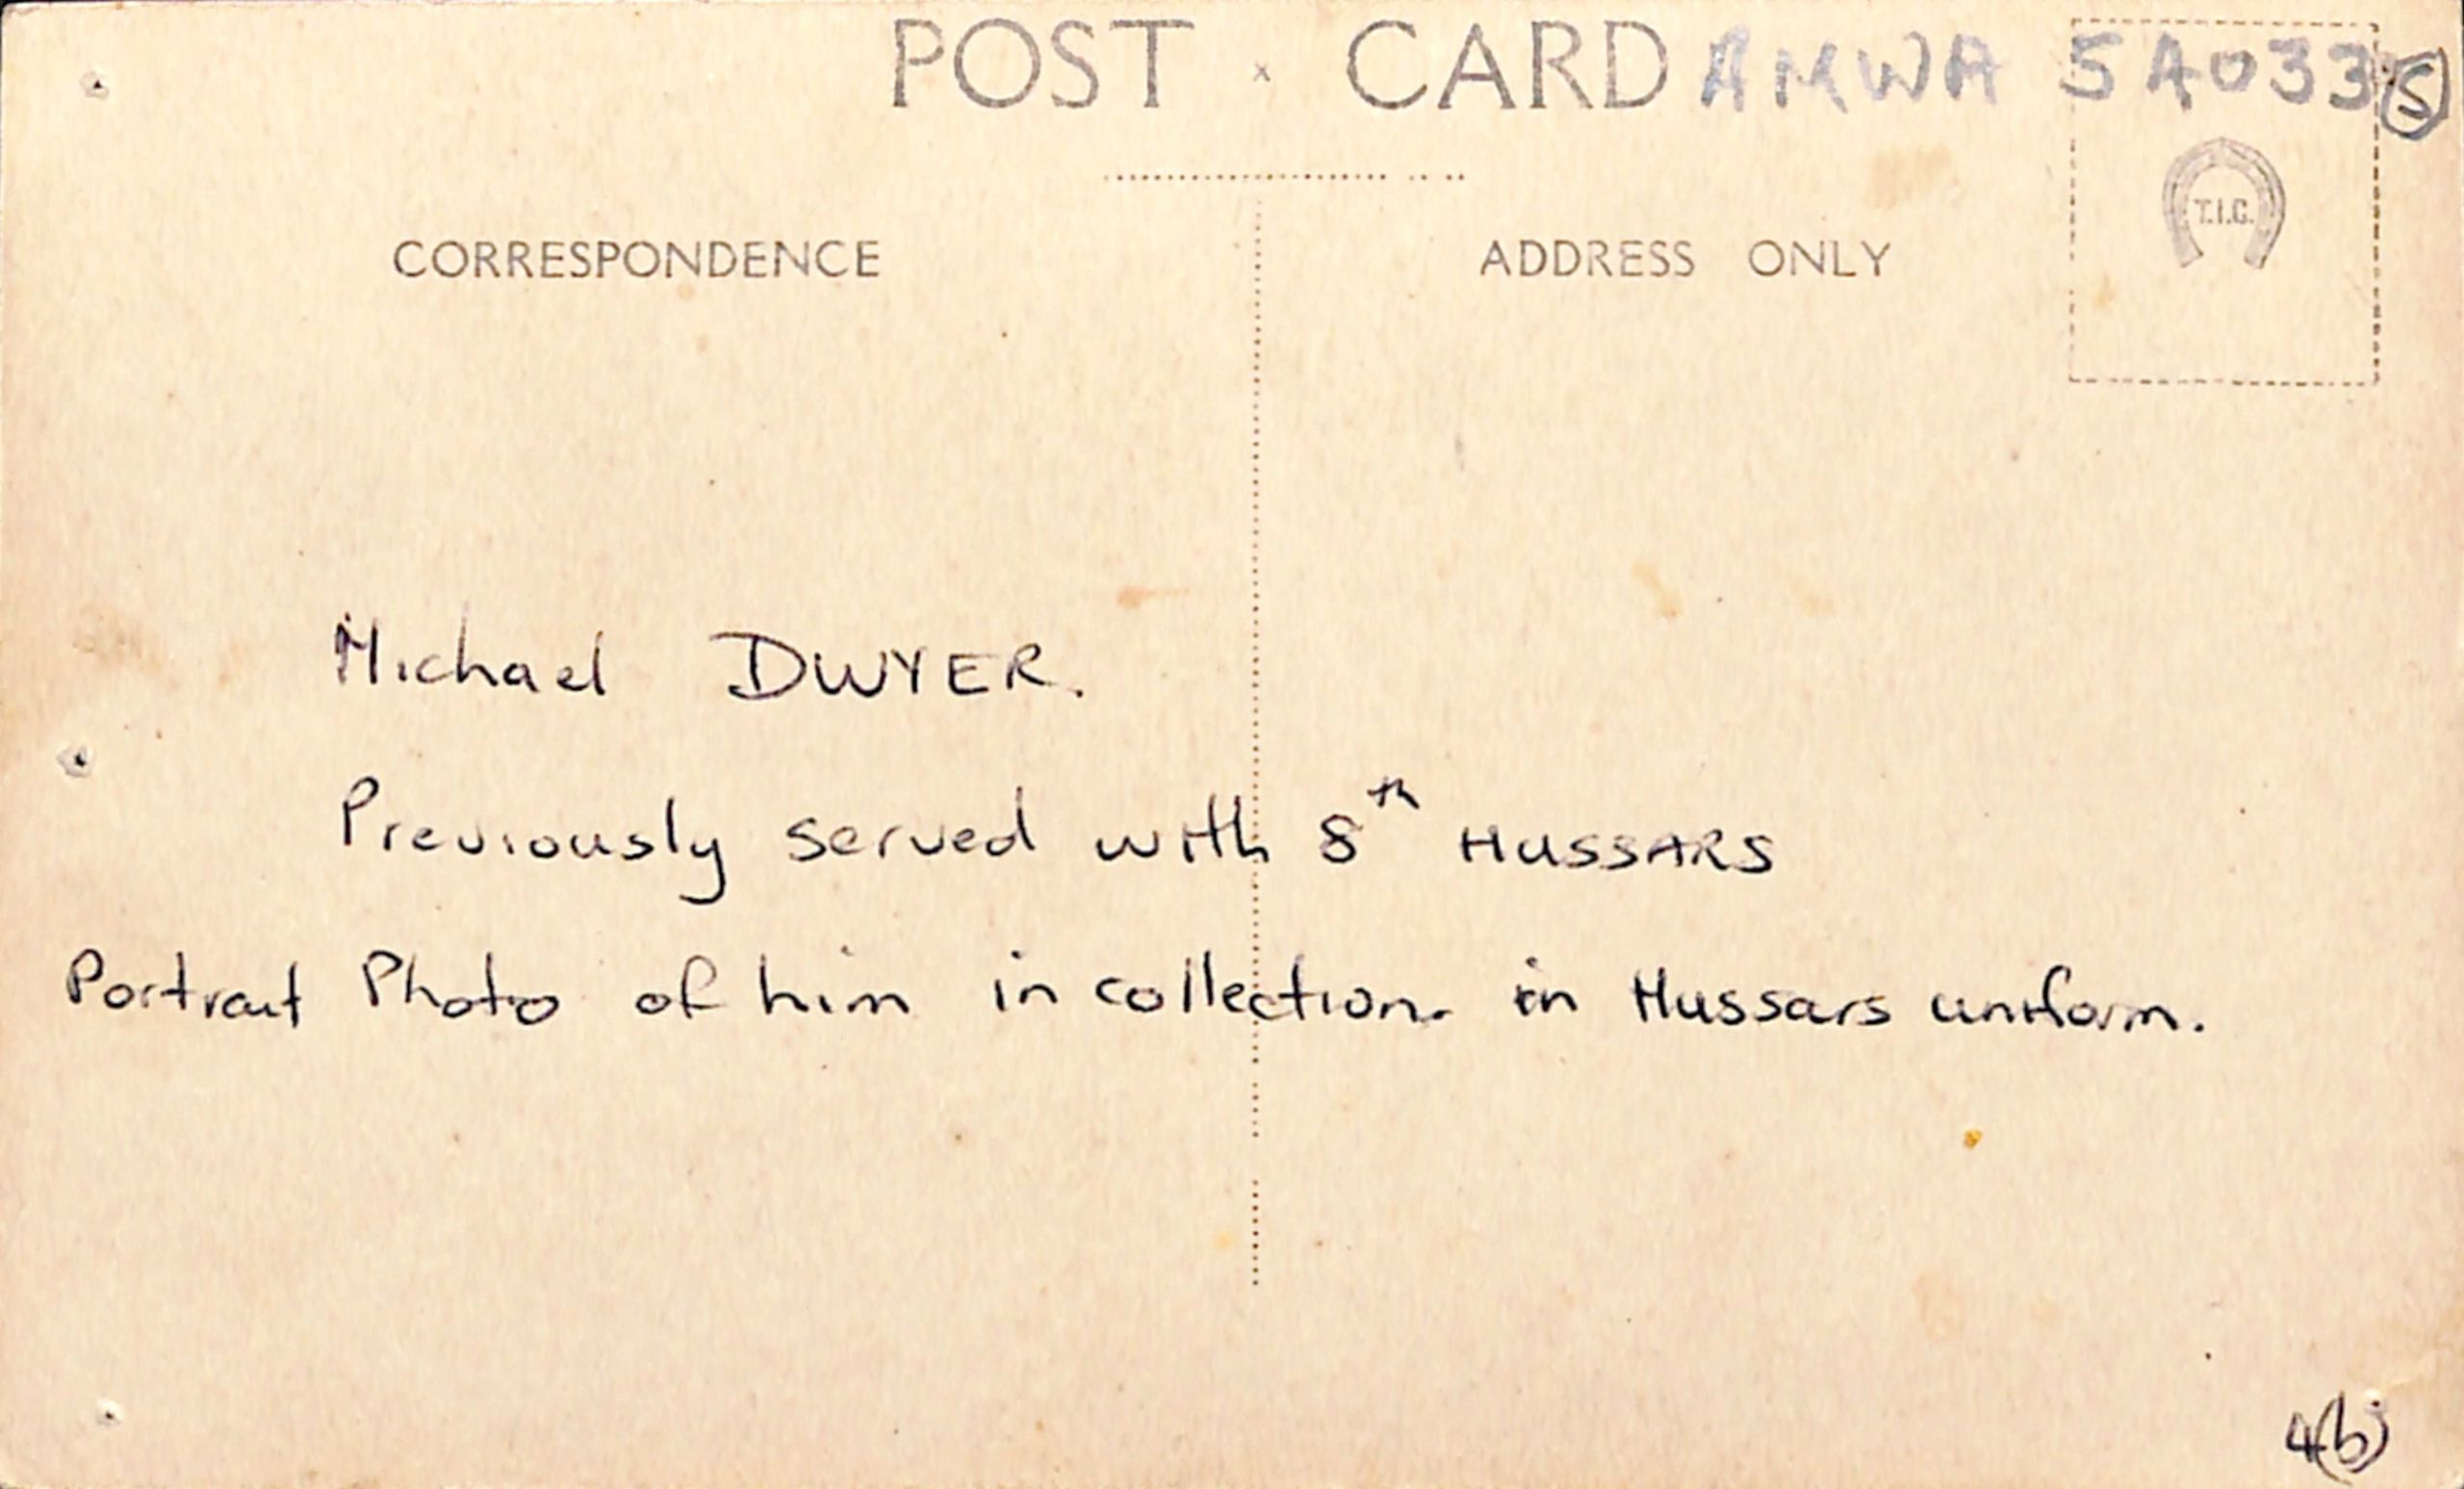 POST x CARD AMWA 5A033 S
T.I.C.
CORRESPONDENCE ADDRESS ONLY
Michael DWYER.
Previously served with 8th HUSSARS
Portrait Photo of him in collection. in Hussars uniform.
4(b)